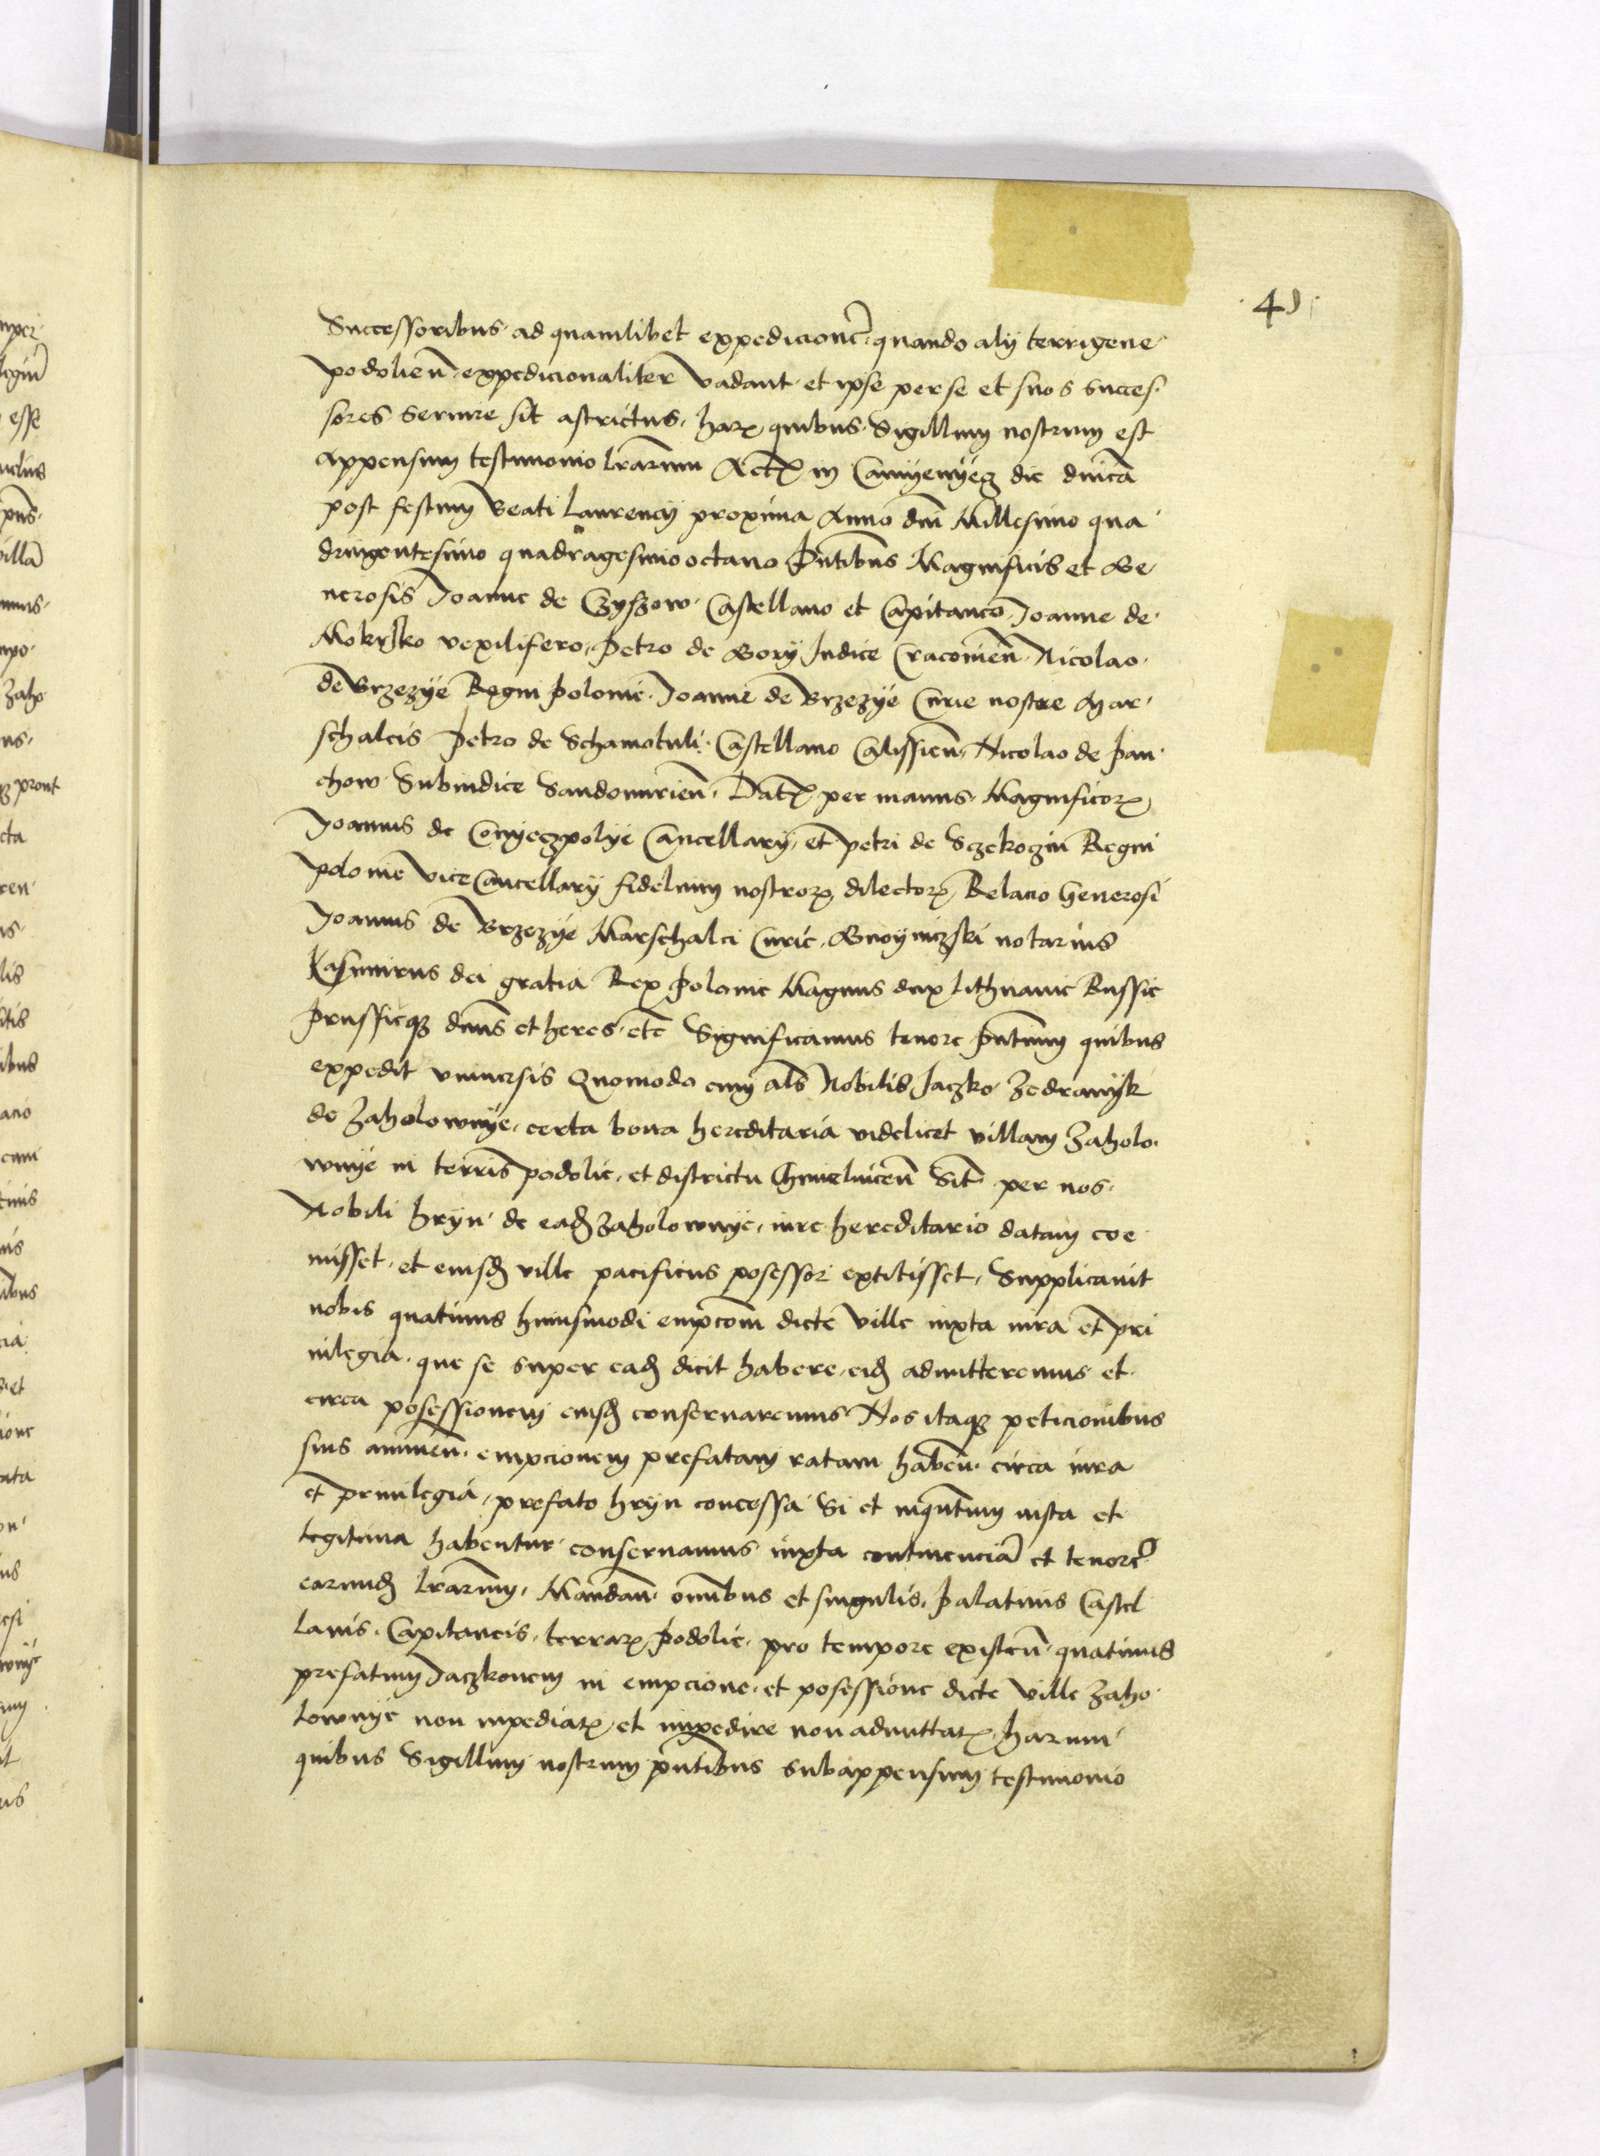 41
Successoribus ad quamlibet expedicionē quando alÿ terrigene
podolieñ expedicionaliter vadant et ipse per se et suos succes
sores seruire sit astrictus, harꝝ quibus Sigillum nostrum est
appensum testimonio lrarum Actꝝ in Camÿenÿecz die dnica
post festum Beati Laurencÿ proxima Anno dni Millesimo qua
dringentesimo quadragesimo octauo Pñtibus Magnificis et Ge
nerosis Joanne de Czyszow Castellano et Capitaneo Joanne de
Mokrsko vexilifero, Petro de Gorÿ Judice Cracouieñ Nicolao
de Brzezÿe Regni Polonie Joanne de Brzezÿe Curie nostre Mar
schalcis Petro de Schamotuli Castellano Calissieñ, Nicolao de Pan
chow Subiudice Sandomirieñ. Datꝝ per manus Magnificorꝝ
Joannis de Conyeczpolÿe Cancellarÿ, et petri de Sczekoczin Regni
polonie vice Cancellarÿ fidelium nostrorꝝ dilectorꝝ Relacio Generosi
Joannis de Brzezÿe Marschalci Curie, Gnoyniczski notarius
Kasimirus dei gratia Rex Polonie Magnus dux Lithuanie Russie
Prussieqꝫ dnus et heres etc̄ Significamus tenore pñtium quibus
expedit vniuersis Quomodo cum als Nobilis Jaczko Zedrawÿk
de Zaholownÿe, certa bona hereditaria videlicet villam Zaholo
wnÿe in terris podolie, et districtu Chmelniceñ Sit̄ per nos
Nobili hrÿn de eadꝫ Zaholownÿe, iure hereditario datam coe
misset, et eiusdꝫ ville pacificus posessor extitisset, Supplicauit
nobis quatinus huiusmodi empcom̄ dicte ville iuxta iura et pri
uilegia, que se super eadꝫ dicit habere, eidꝫ admitteremus et
circa posessionem eiusdꝫ conseruaremus Nos itaqꝫ peticionibus
suis annueñ, empcionem prefatam ratam habeñ, circa iura
et priuilegia, prefato hrÿn concessa Si et inqñtum iusta et
legitima habentur conseruamus iuxta continenciā et tenorē
earundꝫ lrarum, Mandañ omnibus et singulis, Palatinis Castel
lanis Capitaneis, terrarꝝ Podolie, pro tempore existeñ, quatinus
prefatum Jaczkonem in empcione, et posessione dicte ville Zaho
lownÿe non inpediatꝝ, et inpedire non admittatꝝ, harum
quibus Sigillum nostrum pñtibus subappensum testimonio